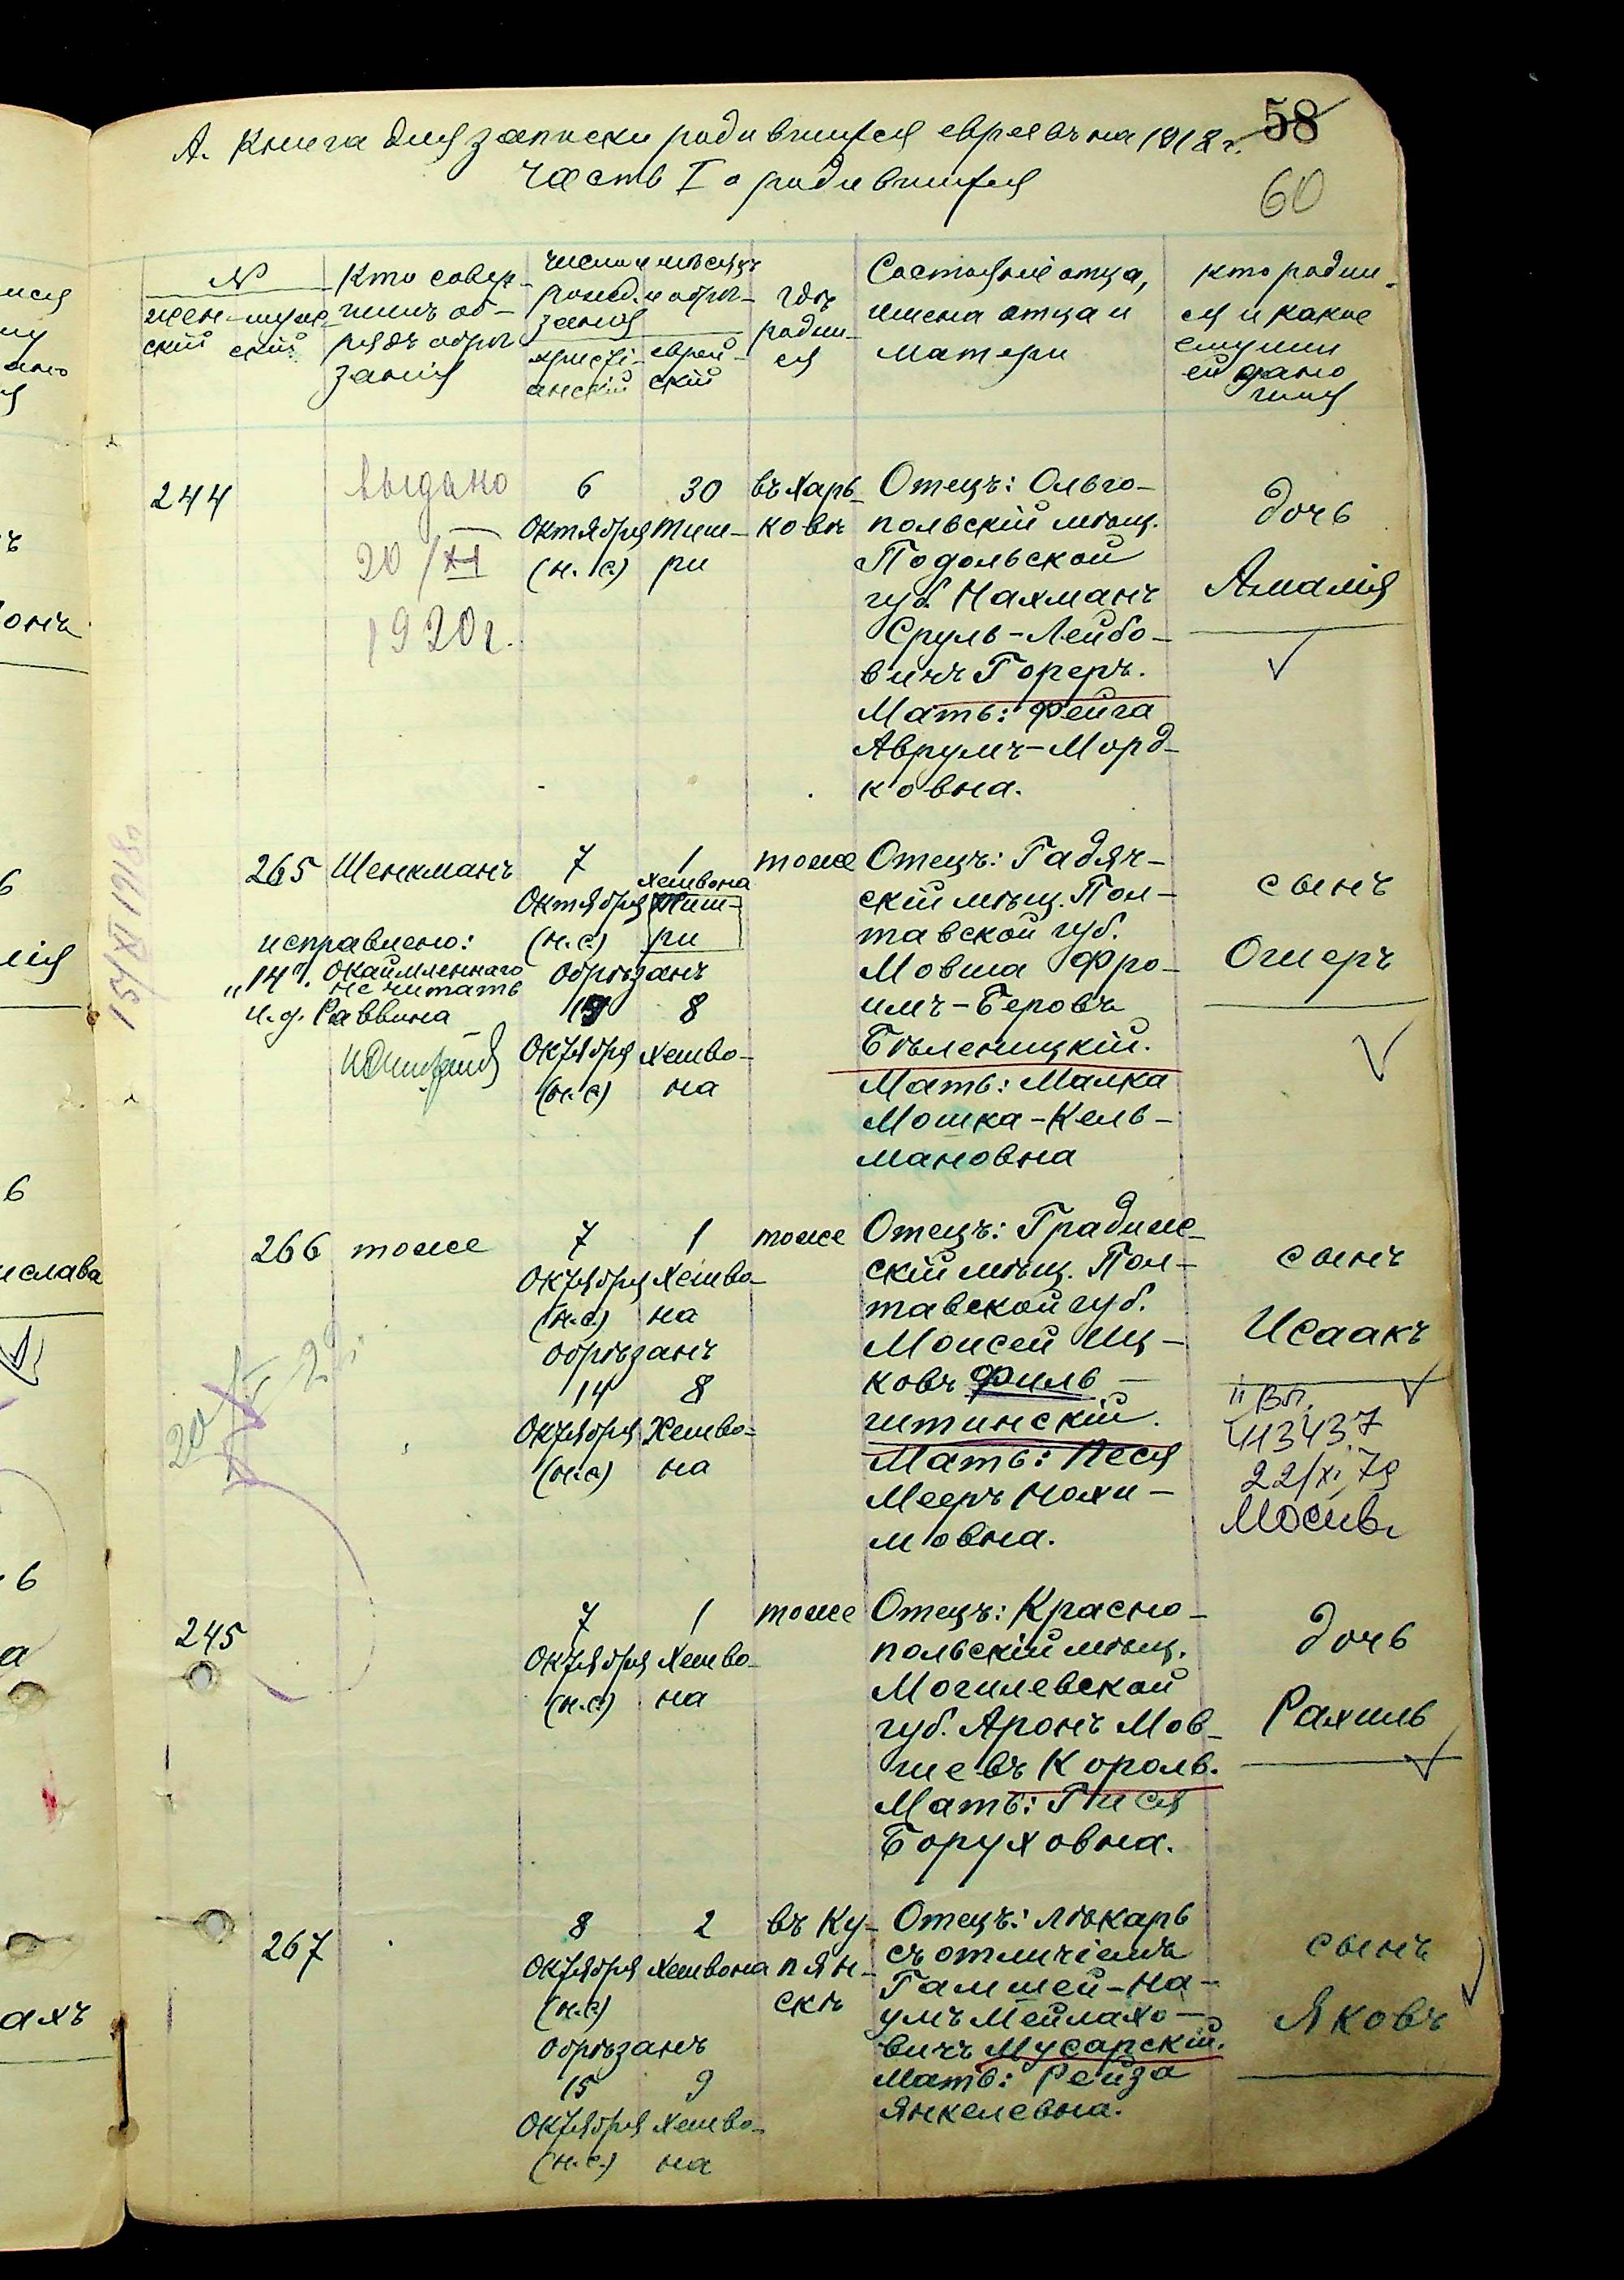 58
А. Книга для записки родившихся евреевъ на 1918 г.
Часть I о родившихся
60
№
жен-
ский
муже-
ский
Кто совер-
шилъ об-
рядъ обрѣ-
занія
число и мѣсяцъ
рожд. и обрѣ-
занія
христі-
анский
еврей-
ский
гдѣ
родил-
ся
Состояніе отца,
имена отца и
матери
кто родил-
ся и какое
ему или
ей дано
имя
244
выдано
20/XI
1920г.
6
Октября
(н. с.)
30
Тиш-
ри
въ Харь-
ковѣ
Отецъ: Ольго-
польскій мѣщ.
Подольской
губ. Нахманъ
Сруль-Лейбо-
вичъ Гореръ.
Мать: Фейга
Аврумъ-Морд-
ковна.
дочь
Амалія
15/XI 1918г.
265
Шенкманъ
исправлено:
"14". Окаймленнаго
не читать
и. д. Раввина
7
Октября
(н.с.)
обрѣзанъ
Октября
(н.с)
1
Хешвона
Тиш-
ри
8
Хешво-
на
тоже
Отецъ: Гадяч-
скій мѣщ. Пол-
тавской губ.
Мовша Фро-
имъ-Беровъ
Бѣленицкій.
Мать: Малка
Мошка-Кель-
мановна
сынъ
Ошеръ
266
тоже
7
Октября
(н.с)
обрѣзанъ
14
Октября
(н.с)
1
Хешво-
на
8
Хешво-
на
тоже
Отецъ: Градиж-
скій мѣщ. Пол-
тавской губ.
Моисей Иц-
ковъ Филь-
штинскій.
Мать: Песя
Мееръ Нохи-
мовна.
сынъ
Исаакъ
413437
22/XI 79
245
7
Октября
(н.с)
1
Хешво-
на
тоже
Отецъ: Красно-
польскій мѣщ.
Могилевской
губ. Аронъ Мов-
шевъ Король.
Мать: Гися
Боруховна.
дочь
Рахиль
267
8
Октября
(н.с)
обрѣзанъ
15
Октября
(н.с.)
2
Хешвона
9
Хешво-
на
въ Ку-
пян-
скѣ
Отецъ: лѣкарь
съ отличіемъ
Гамшей-На-
умъ Мейлахо-
вичъ Мусарскій.
Мать: Рейза
Янкелевна.
сынъ
Яковъ